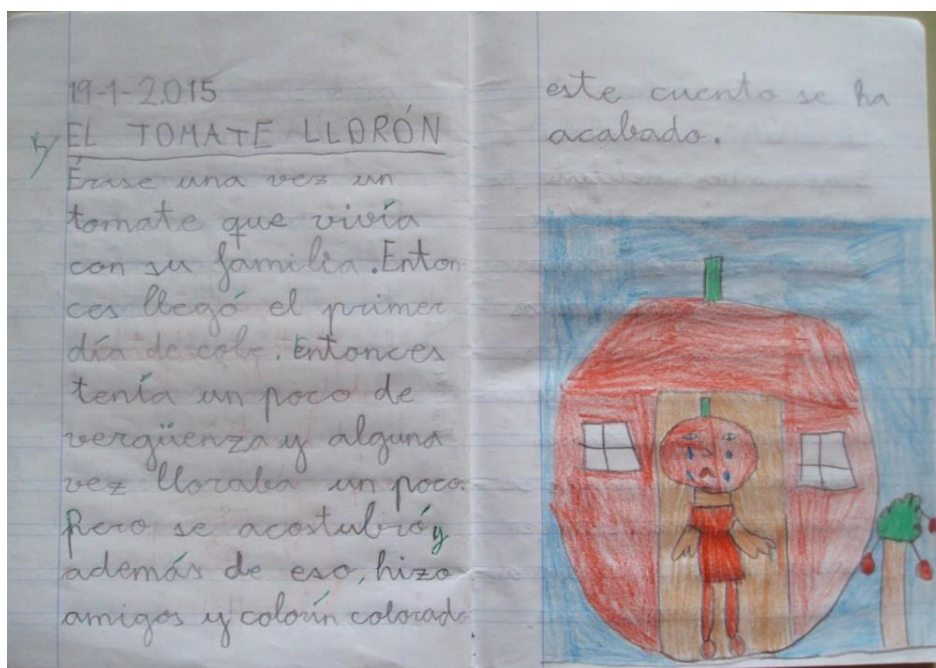 19-1-2.015
EL TOMATE LLORÓN
Érase una vez un
tomate que vivía
con su familia. Enton
ces llegó el primer
día de cole. Entonces
tenía un poco de
vergüenza y alguna
vez lloraba un poco.
Pero se acostubró y
además de eso, hizo
amigos y colorín colorado
este cuento se ha
acabado.